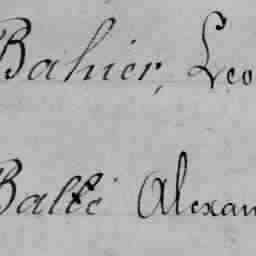 Bahier, Leo
Ballé Alexan